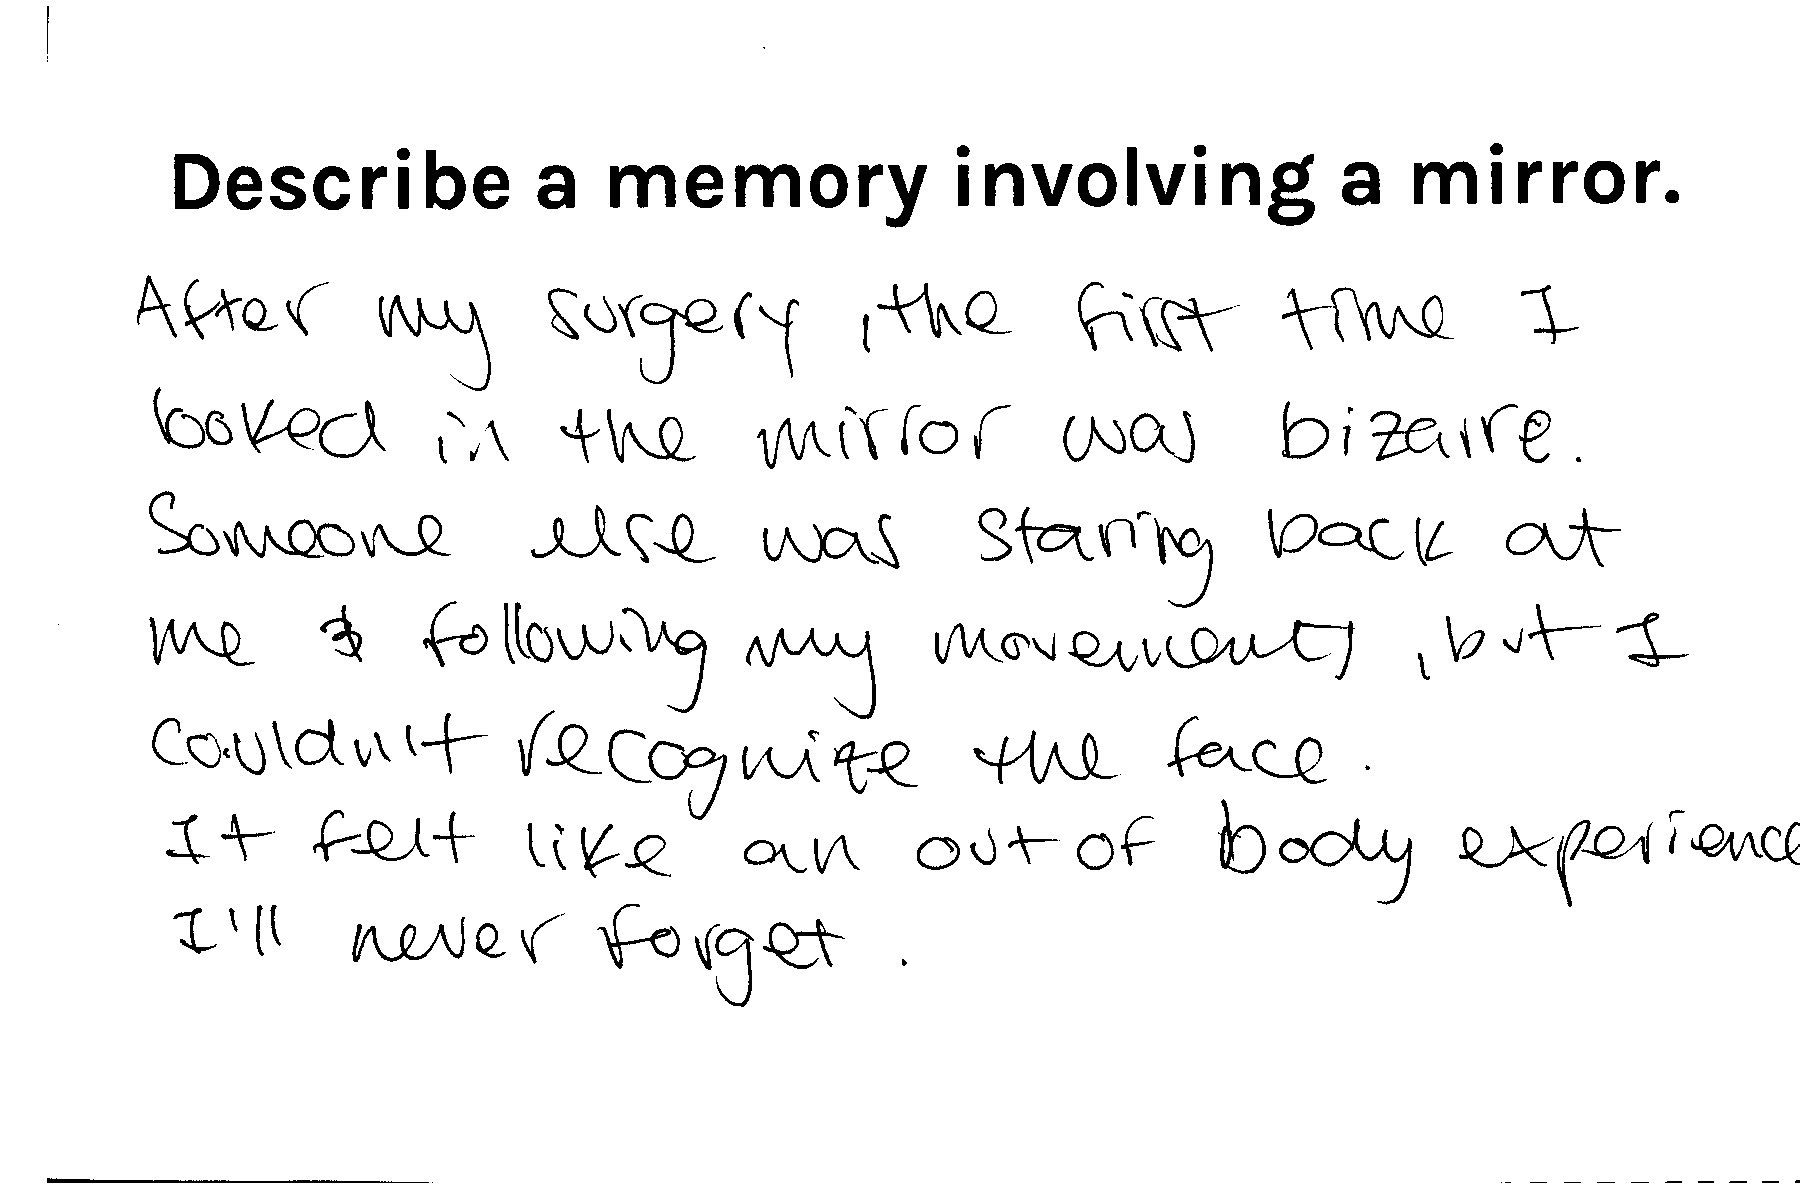 Describe a memory involving a mirror.
After my surgery, the first time I
looked in the mirror was bizarre.
Someone else was staring back at
me & following my movements, but I
couldn't recognize the face.
It felt like an out of body experience
I'll never forget.